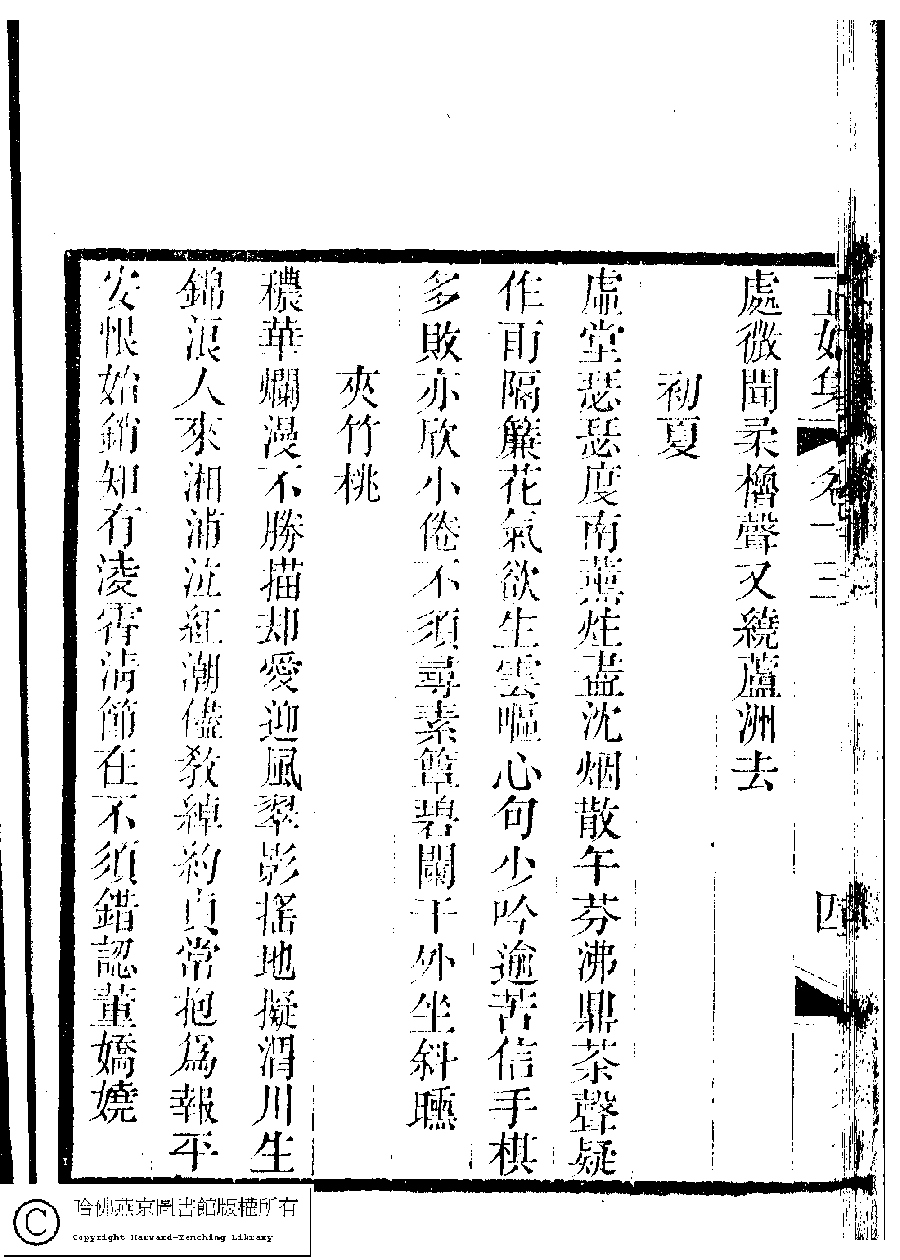 正始集 卷十三 四
處微聞柔櫓聲又繞蘆洲去
初夏
虛堂瑟瑟度南薰炷盡沈烟散午芬沸鼎茶聲疑
作雨隔簾花氣欲生雲嘔心句少吟逾苦信手棋
多敗亦欣小倦不須尋素簟碧闌干外坐斜曛
夾竹桃
穠華爛漫不勝描却愛迎風翠影搖地擬渭川生
錦浪人來湘浦泣紅潮儘教綽約貞常抱爲報平
安恨始銷知有凌霄清節在不須錯認董嬌嬈
哈佛燕京圖書館版權所有
Copyright Harvard-Yenching Library